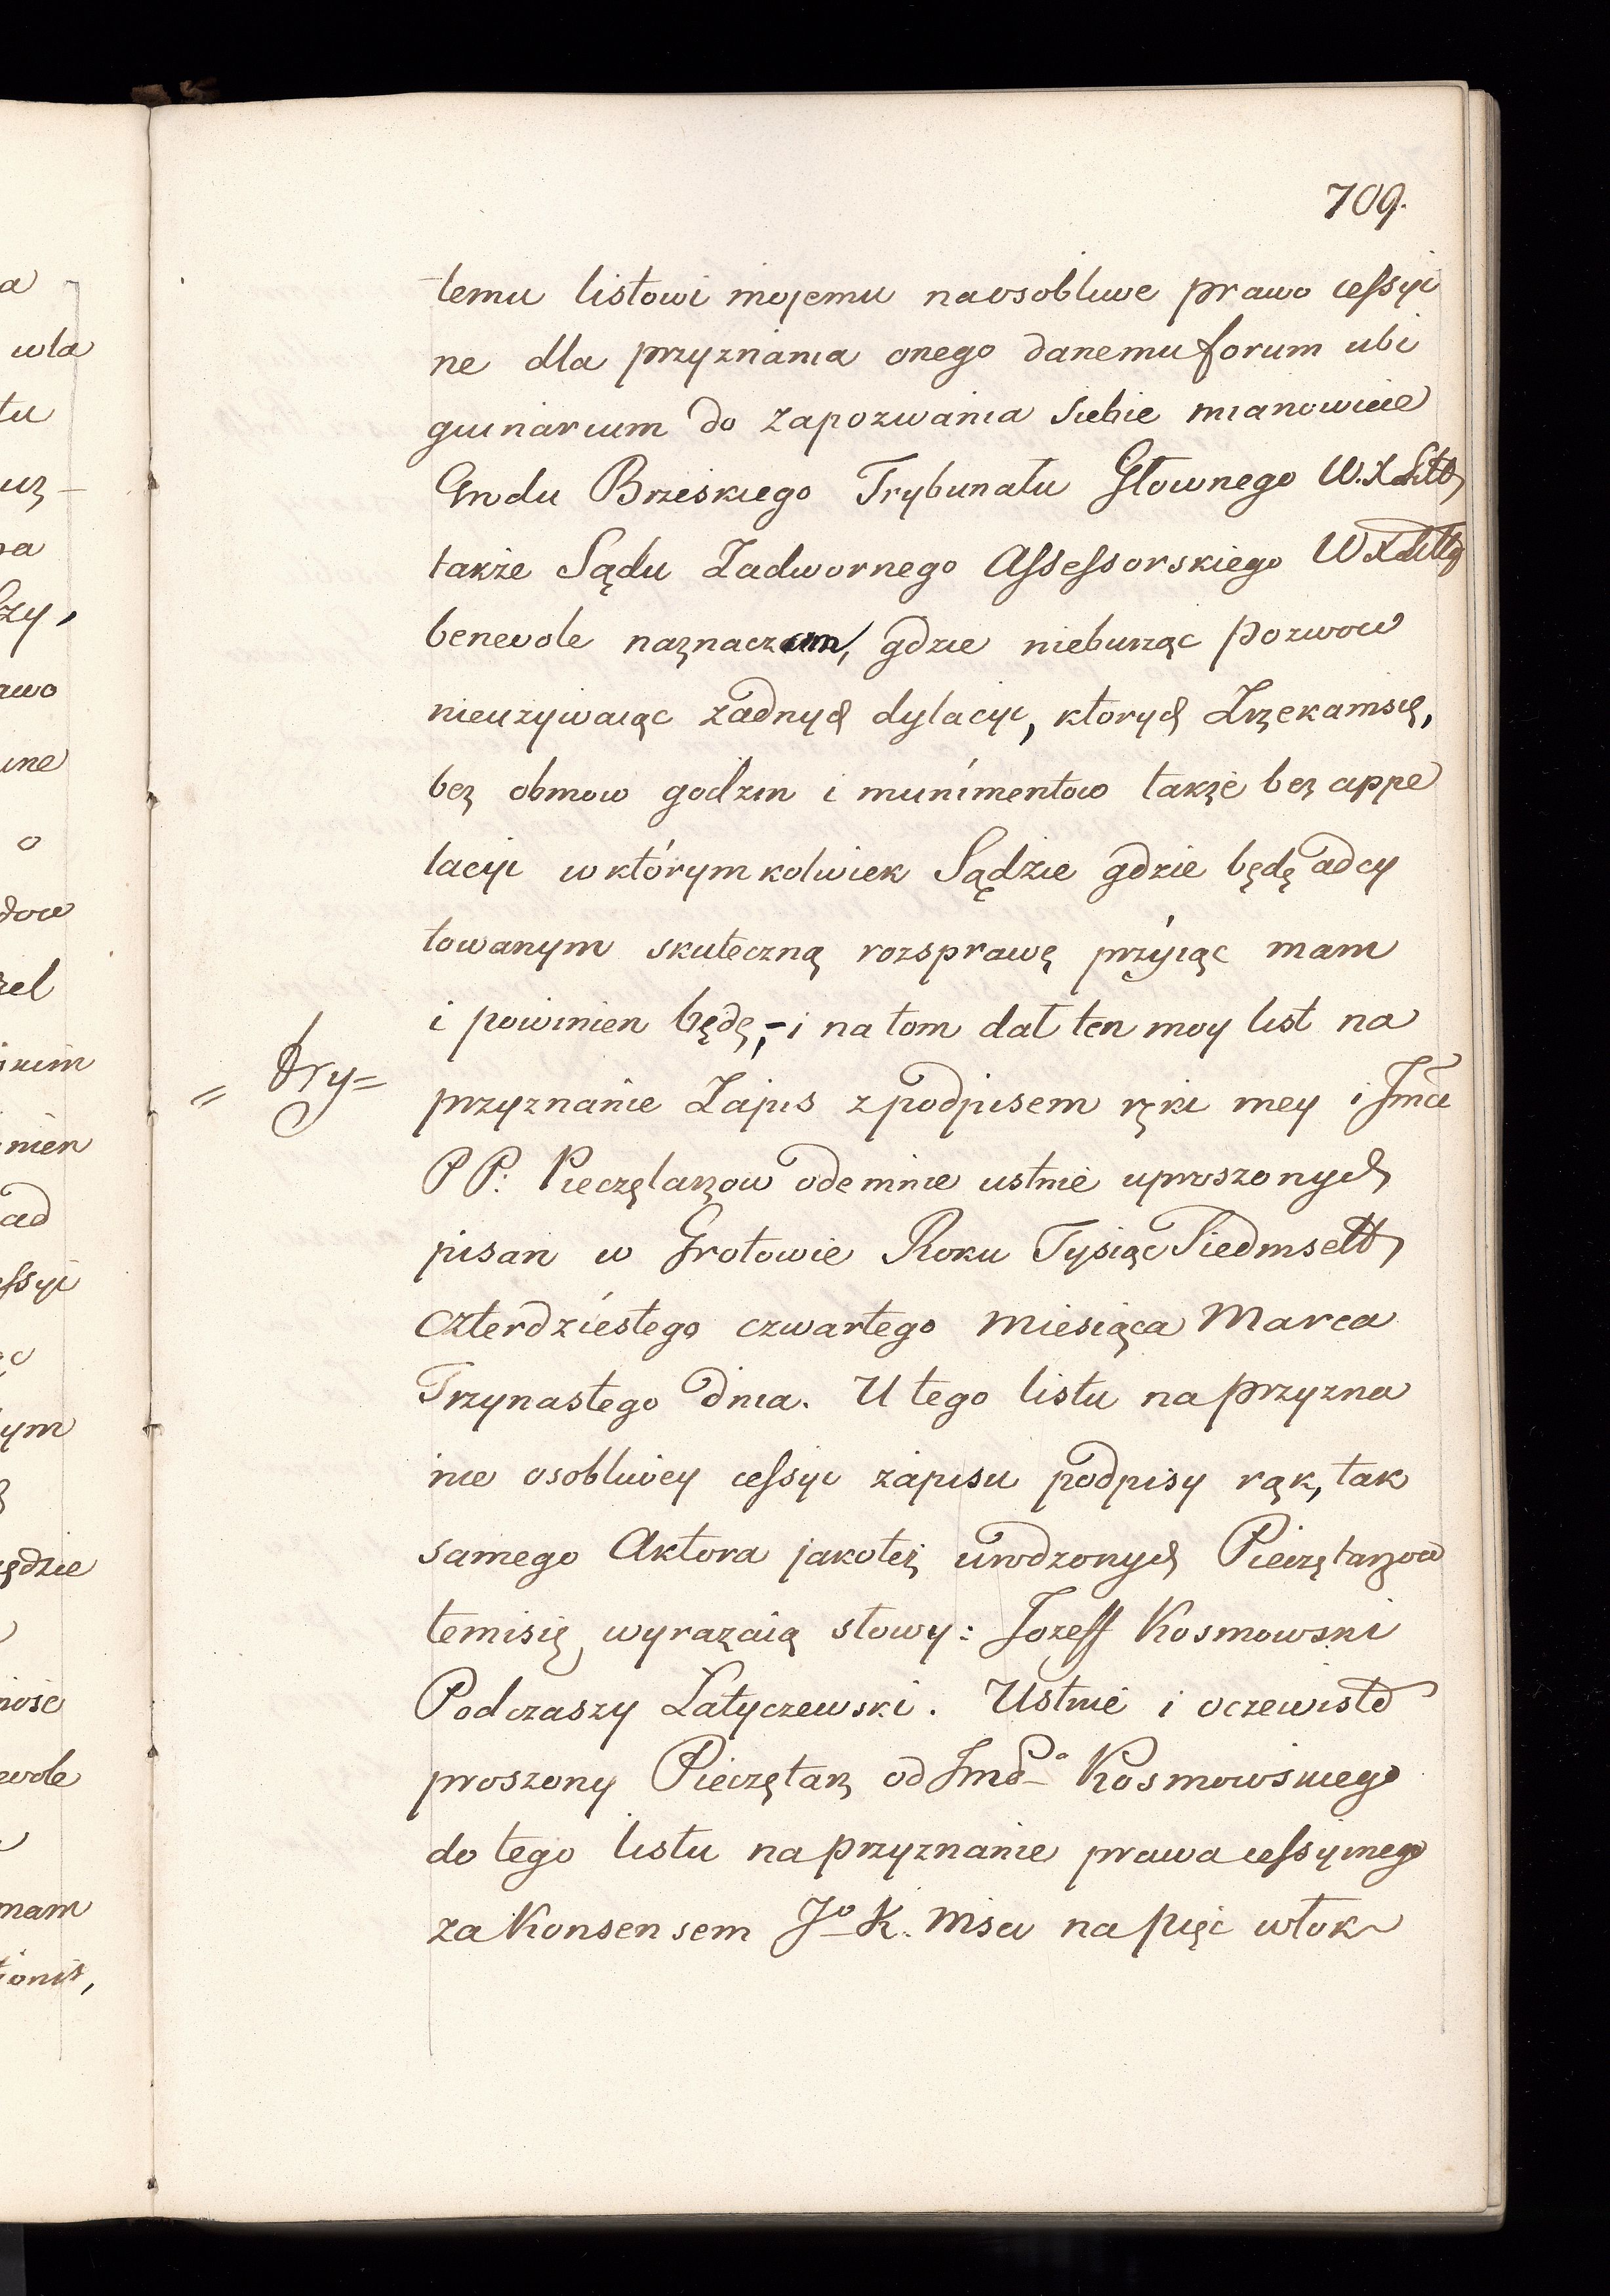 709.
temu listowi mojemu naosobliwe prawo cessyi
ne dla przyznania onego danemu forum ubi
quinarium do zapozwania siebie mianowicie
Grodu Brzeskiego Trybunału Głownego W. X Litt
także Sądu Zadwornego Assessorskiego W X Littg
benevole naznaczam, gdzie nieburząc pozwow
nieużywaiąc żadnych dylacyi, ktorych Zrzekamsię,
bez obmow godzin i munimentow także bez appe
lacyi w którymkolwiek Sądzie gdzie będę adcy
towanym skuteczną rozsprawę przyiąc mam
i powinien będę,- i na tom dał ten moy list na
= Ary=
przyznanie Zapis z podpisem ręki mey i Jmci
PP: Pieczętarzow odemnie ustnie uproszonych
pisan w Grotowie Roku Tysiąc Siedmsett
czterdziestego czwartego Miesiąca Marca
Trzynastego dnia. U tego listu na przyzna
nie osobliwey cessyi zapisu podpisy rąk, tak
samego Aktora jakoteż urodzonych Pieczętarzow
temisię wyrażaią słowy: Jozeff Kosmowski
Podczaszy Latyczewski. Ustnie i oczewisto
proszony Pieczętarz od Jmć P° Kosmowskiego
do tego listu na przyznanie prawa cessyinego
za Konsensem Jo K. Msci na pięć włok
a
wla
tu
na
zy,
awo
ine
o
dow
zel
skim
nien
ad
essyi
ym
ędzie
ność
evole
mam
ionis,